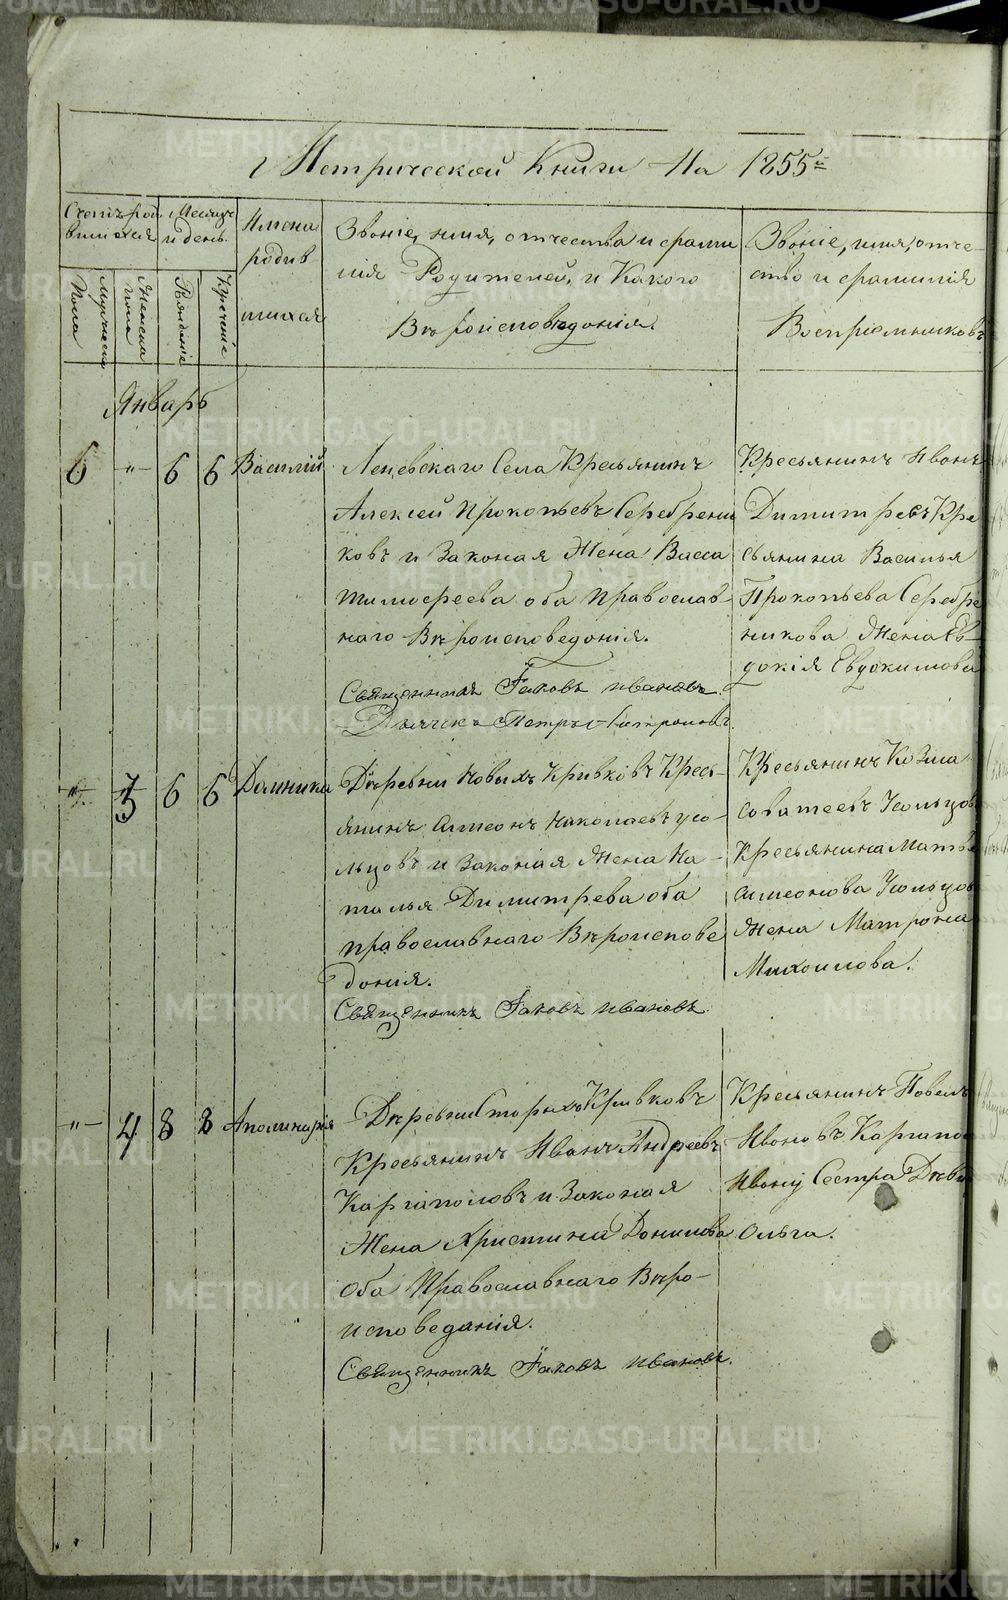 Метрической Книги На 1855й
Счетъ род
вшихся
Месяцъ
и день.
Имена
родив
шихся
Званіе, имя, отчества и фами
лія Родителей, и Какого
Вѣроисповедонія.
Званіе, имя, отче-
ство и фамилія
Воспріемниковъ
Мужеска
Пола
Женска
пола
Рожденіе
Крещеніе
Январь
6 -"- 6 6 Василій
Леневскаго Села Кресьянинъ
Алексей Прокопьевъ Серебрени
ковъ и Законая Жена Васса
Тимофеева оба Православ-
наго Вѣроисповедонія.
Священникъ Іаковъ Ивановъ.
Дьячекъ Петръ
Кресьянинъ Иванъ
Димитревъ Кре
сьянина Василья
Прокопьева Серебре
никова Жена Ев-
докія Евдокимова
-"- 3 6 6 Домника
Деревни Новыхъ Кривковъ Кресь-
янинъ Симеонъ Николаевъ Усо-
льцовъ и Законія Жена На-
талья Димитрева оба
православнаго Вѣроисповe
донія.
Священникъ Іаковъ Ивановъ.
Кресьянинъ Козма
Саватеевъ Усольцов
Кресьянина Матвe
Симеонова Усольцов
Жена Матрона
Михоилова.
-"- 4 8 8 Аполинарія
Деревни Старыхъ Кривковъ
Кресьянинъ Иванъ Андреевъ
Каргаполовъ и Законая
Жена Христина Донилова
Оба Православнаго Вѣро-
исповеданія.
Священникъ Іаковъ Ивановъ.
Кресьянинъ Повелъ
Ивоновъ Каргапол
Ивону Сестра Дѣви
Ольга.
METRIKI.GASO-URAL.RU